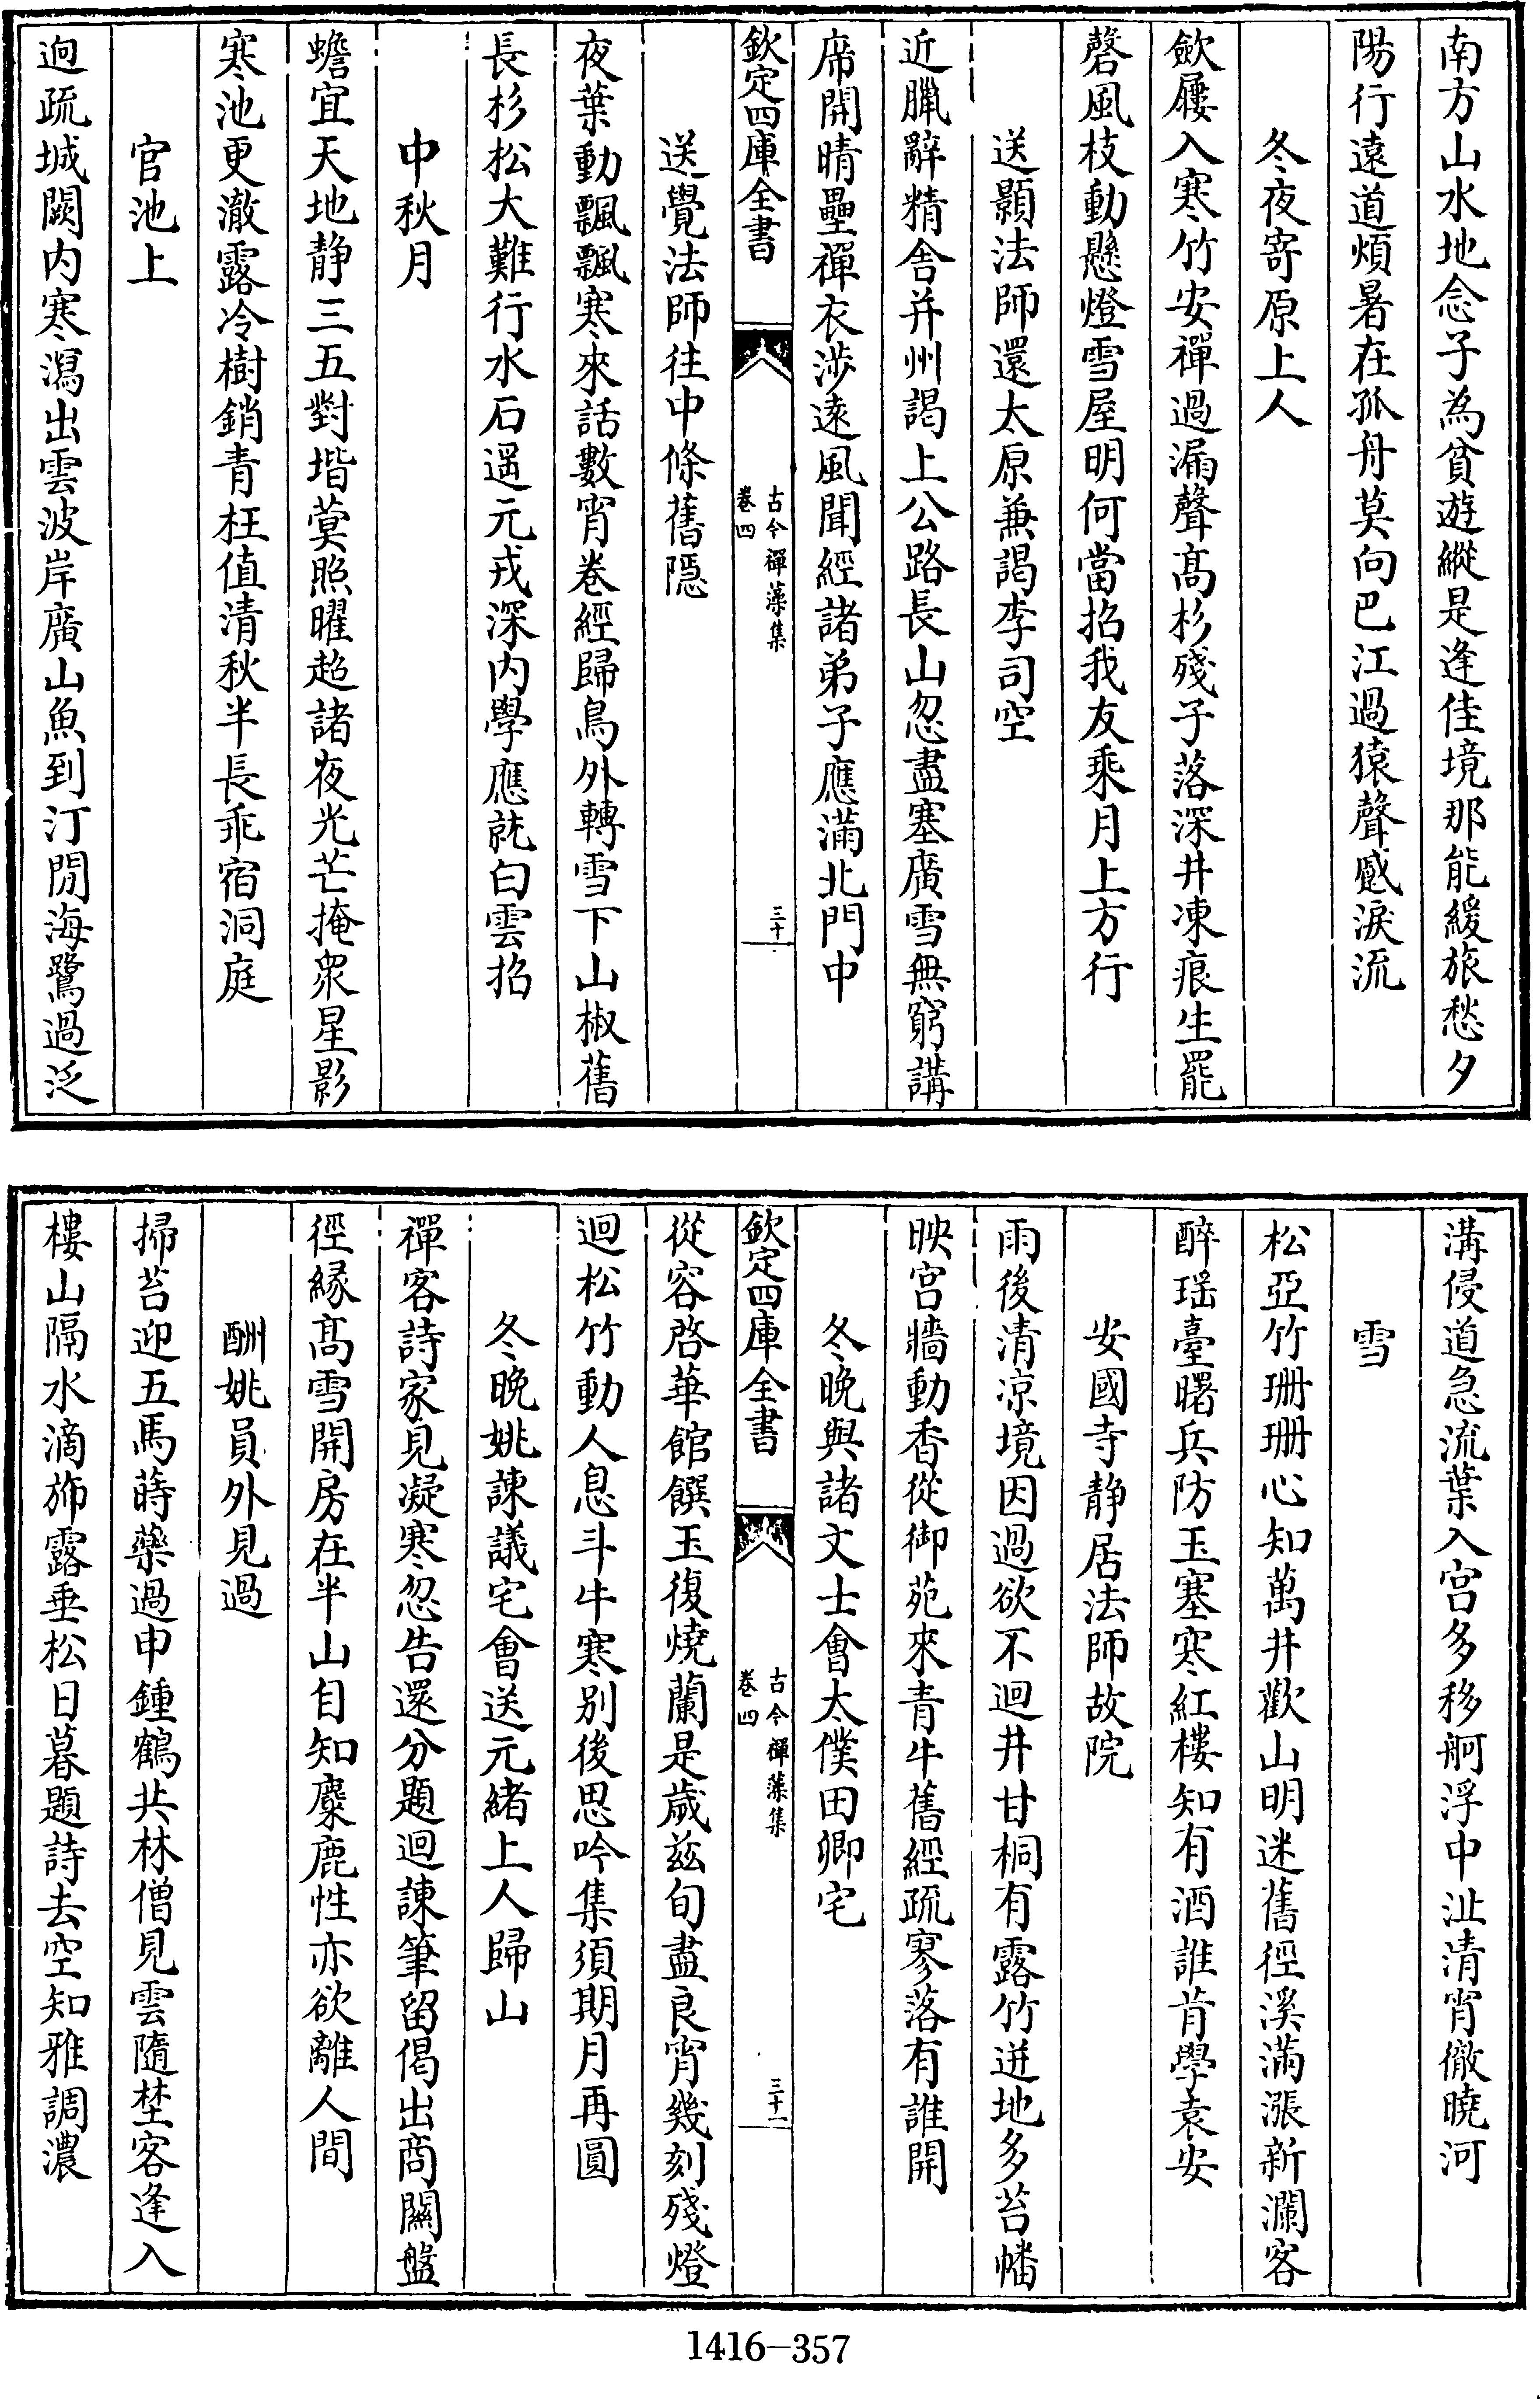 南方山水地念子為貧遊縱是逢佳境那能緩旅愁夕
陽行遠道煩暑在孤舟莫向巴江過猿聲感淚流
冬夜寄原上人
歛屨入寒竹安禪過漏聲髙杉殘子落深井凍痕生罷
磬風枝動懸燈雪屋明何當招我友乘月上方行
送顥法師還太原兼謁李司空
近臘辭精舍并州謁上公路長山忽盡塞廣雪無窮講
席開晴壘禪衣涉遠風聞經諸弟子應滿北門中
欽定四庫全書
古今禪藻集
卷四
三十
送覺法師往中條舊隱
夜葉動飄飄寒來話數宵卷經歸鳥外轉雪下山椒舊
長杉松大難行水石遥元戎深内學應就白雲招
中秋月
蟾宜天地静三五對堦蓂照曜超諸夜光芒掩衆星影
寒池更澈露冷樹銷青枉值清秋半長乖宿洞庭
官池上
逈疏城闕内寒瀉出雲波岸廣山魚到汀閒海鷺過泛
溝侵道急流葉入宫多移舸浮中沚清宵徹曉河
雪
松亞竹珊珊心知萬井歡山明迷舊徑溪滿漲新瀾客
醉瑶臺曙兵防玉塞寒紅樓知有酒誰肯學袁安
安國寺静居法師故院
雨後清凉境因過欲不迴井甘桐有露竹迸地多苔幡
映宫牆動香從御苑來青牛舊經疏寥落有誰開
冬晚與諸文士會太僕田卿宅
欽定四庫全書
古今禪藻集
卷四
三十一
從容啓華館饌玉復燒蘭是歲兹旬盡良宵幾刻殘燈
迴松竹動人息斗牛寒别後思吟集須期月再圓
冬晚姚諫議宅會送元緒上人歸山
禪客詩家見凝寒忽告還分題迴諫筆留偈出商關盤
徑緣髙雪開房在半山自知麋鹿性亦欲離人間
酬姚員外見過
掃苔迎五馬蒔藥過申鍾鶴共林僧見雲隨埜客逢入
樓山隔水滴斾露垂松日暮題詩去空知雅調濃
1416-357